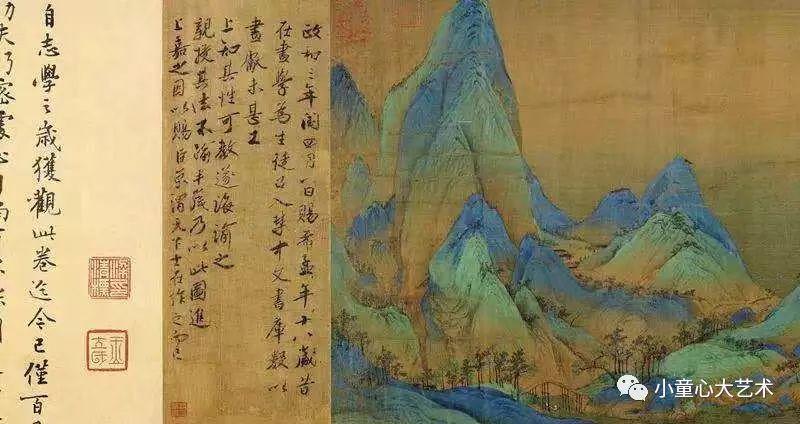 政和三年閏四月一日賜希孟年十八歲昔
在畫學為生徒召入禁中文書庫數以
畫獻未甚工
上知其性可教遂誨諭之
親授其法不踰半歲乃以此圖進
上嘉之因以賜臣京謂天下士在作之而已
自志學之歲獲觀此卷迄今已僅百
功夫巧密處心目尚有不能周
小童心大艺术